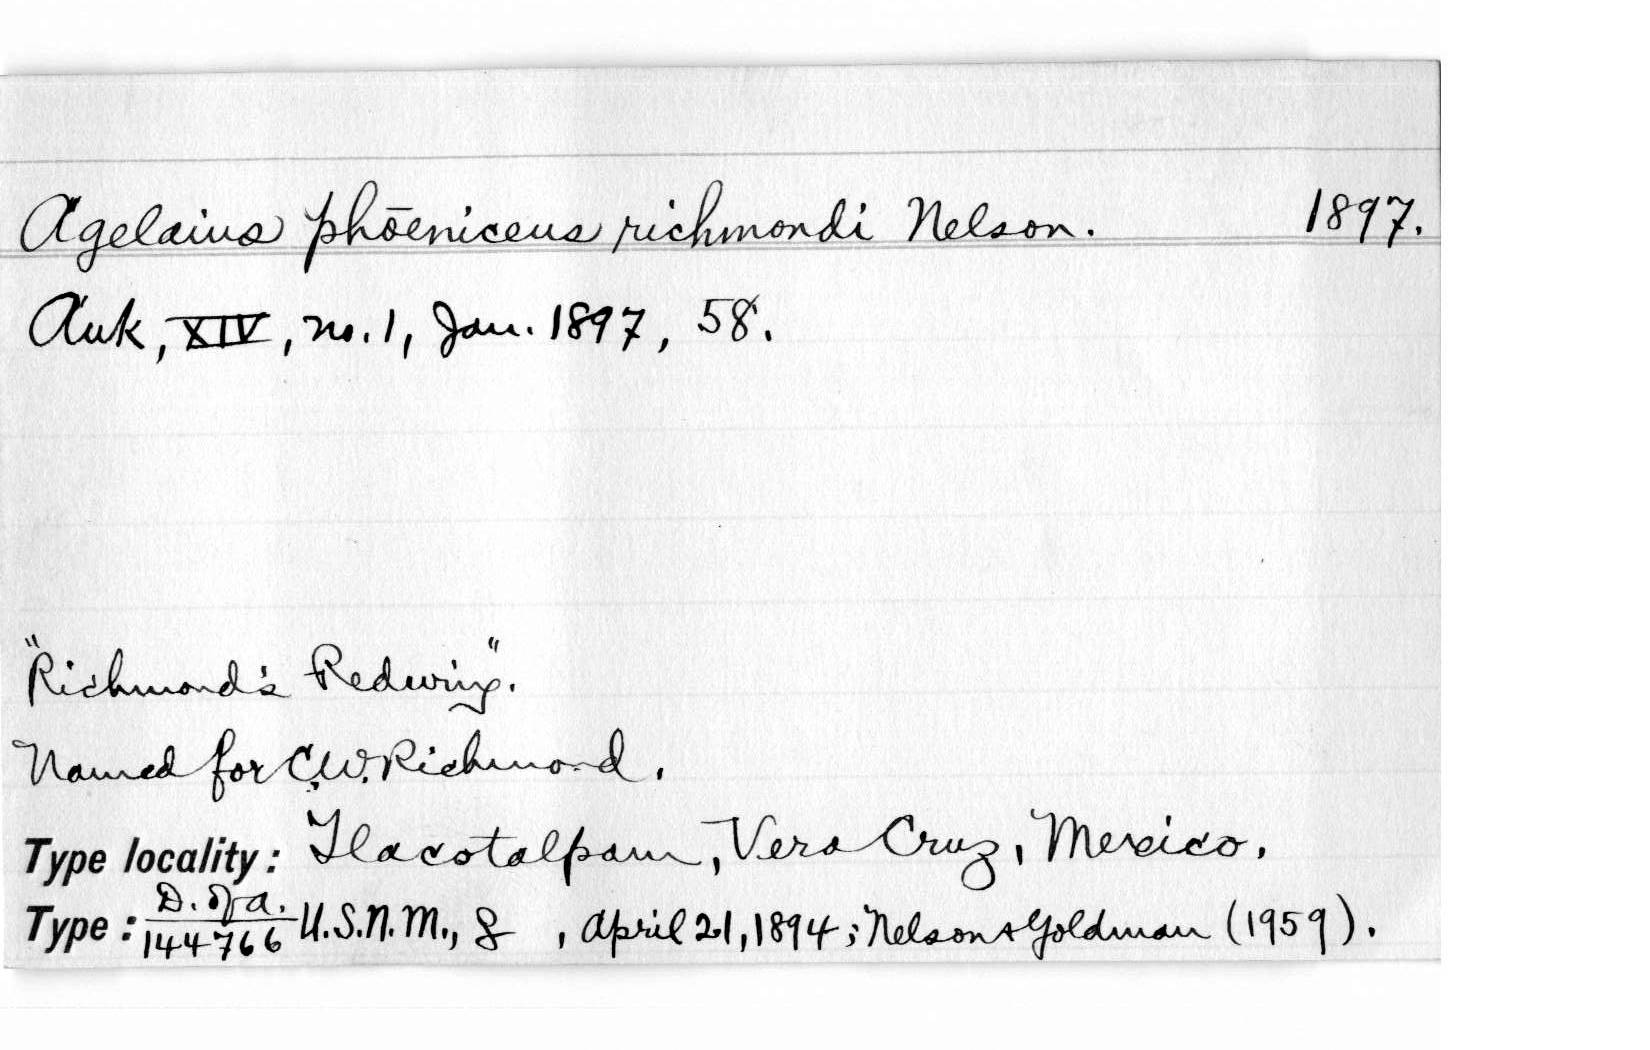 Agelaius phœniceus richmondi Nelson. 1897.
Auk, XIV, no. 1, Jan. 1897, 58.
"Richmond's Redwing".
Named for C.W. Richmond.
Type locality: Tlacotalpam, Vera Cruz, Mexico.
Type: D. of A. 144766 U.S.N.M., , April 21, 1894; Nelson & Goldman (1959).